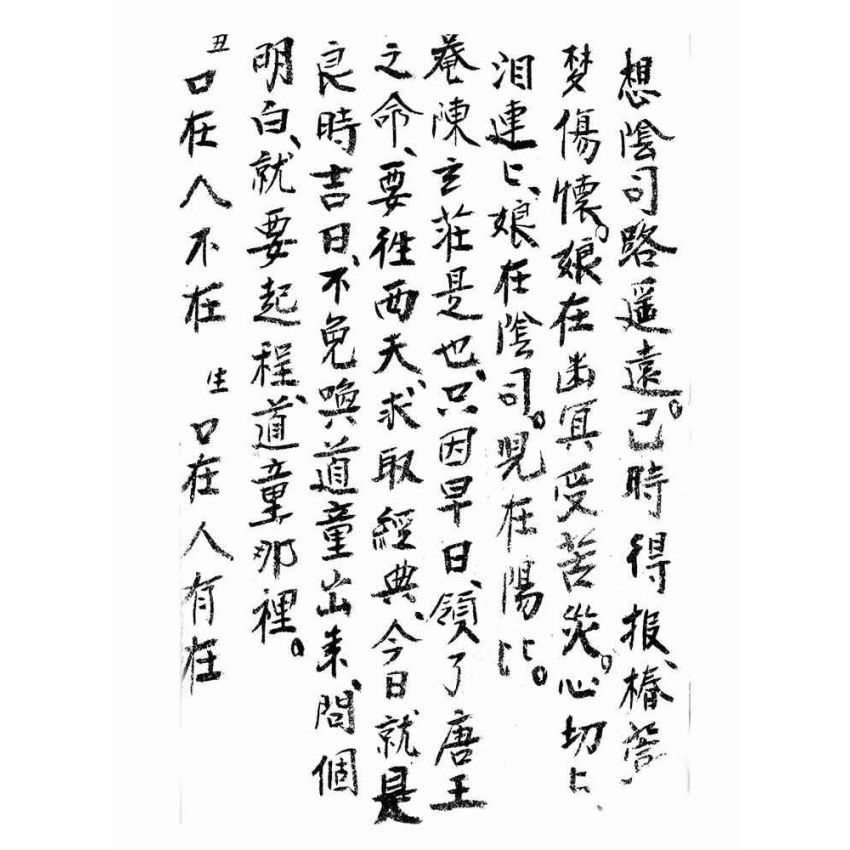 想陰司路遥遠。己時得报、椿萱
梦傷懷。娘在幽冥受苦災。心切〻、
泪連〻、娘在陰司。児在陽〻。
菴陳玄莊是也、只因早日、領了唐王
之命、要徃西天、求取經典、今日就是
良時吉日、不免喚道童出来、問個
明白、就要起程、道童那裡。
丑 口在人不在 生 口在人有在